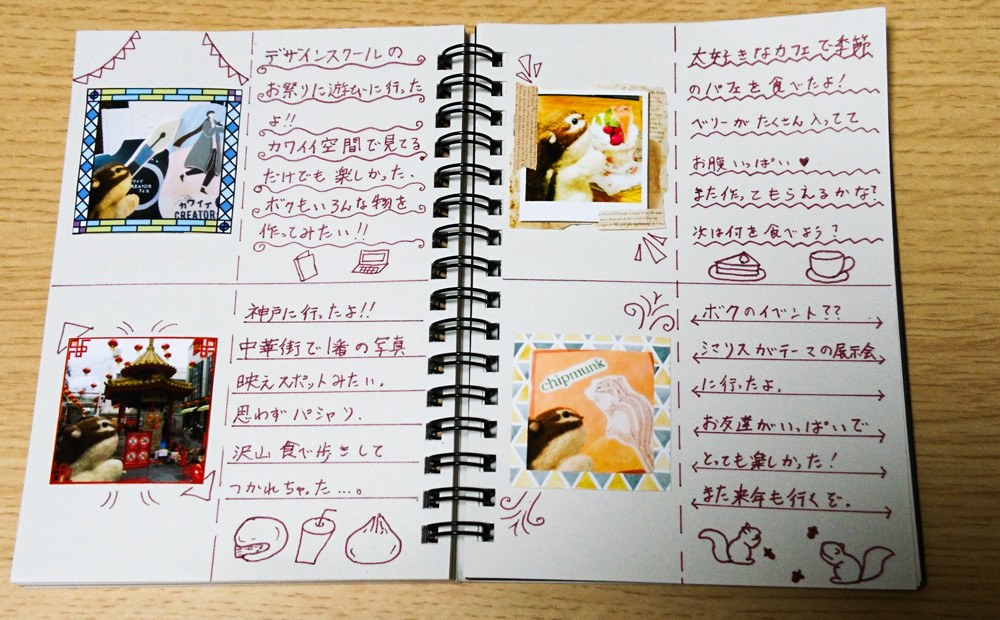 デザインスクールの
お祭りに遊びに行った
よ!!
カワイイ空間で見てる
だけでも楽しかった.
ボクもいろんな物を
作ってみたい!!
カワイイ
CREATOR
神戸に行ったよ!!
中華街で1番の写真
映えスポットみたい。
思わずパシャリ.
沢山食べ歩きして
つかれちゃった...。
大好きなカフェで季節
のパフェを食べたよ!
ベリーがたくさん入ってて
お腹いっぱい♥
また作ってもらえるかな?
次は何を食べよう?
ボクのイベント??
シマリスがテーマの展示会
に行ったよ.
お友達がいっぱいで
とっても楽しかった!
また来年も行くぞ.
chipmunk